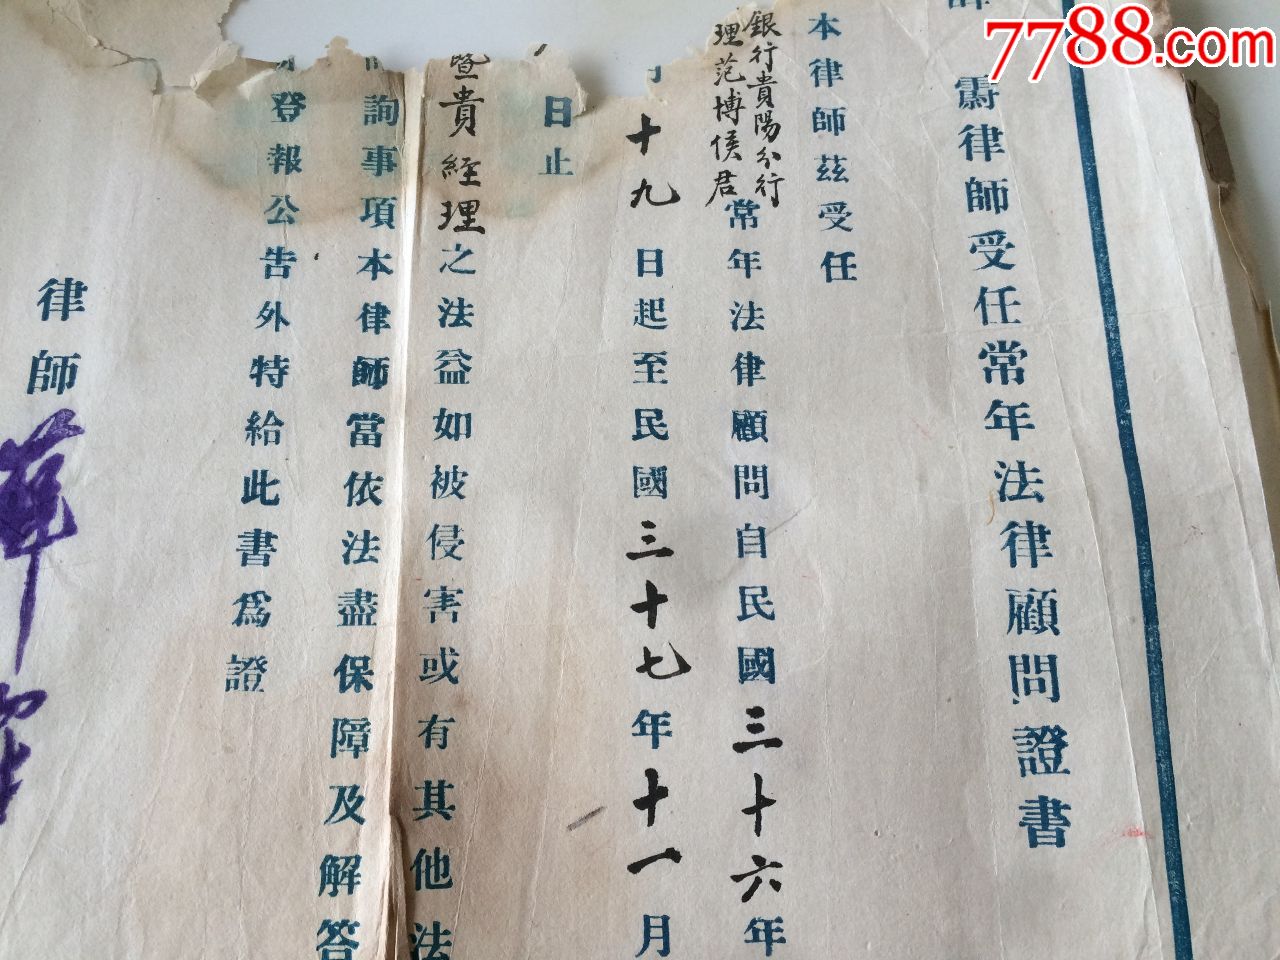 7788.com
霨律師受任常年法律顧問證書
本律師茲受任
銀行貴陽分行
理范博侯君
常年法律顧問自民國三十六年
十九日起至民國三十七年十一月
日止
暨貴經理之法益如被侵害或有其他法
詢事項本律師當依法盡保障及解答
登報公告外特給此書爲證
律師